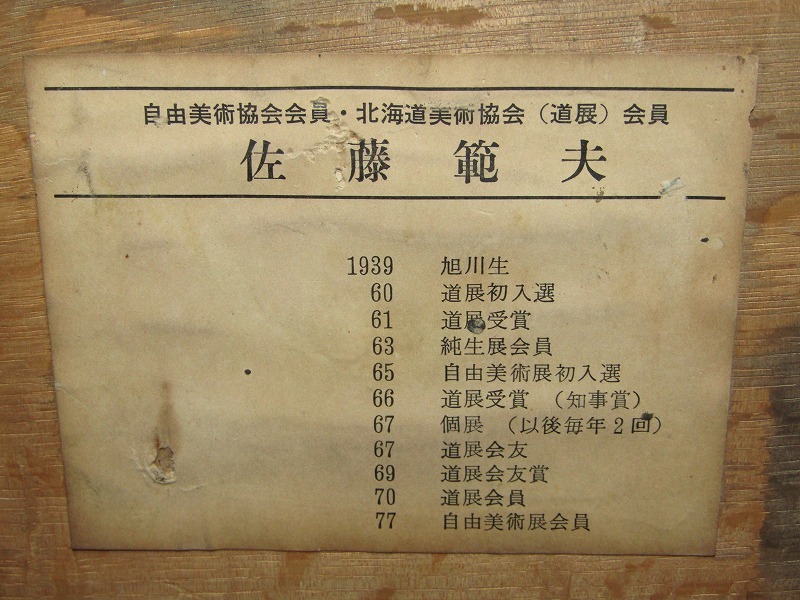 自由美術協会会員・北海道美術協会（道展）会員
佐藤範夫
1939 旭川生
60 道展初入選
61 道展受賞
63 純生展会員
65 自由美術展初入選
66 道展受賞（知事賞）
67 個展（以後毎年2回）
67 道展会友
69 道展会友賞
70 道展会員
77 自由美術展会員